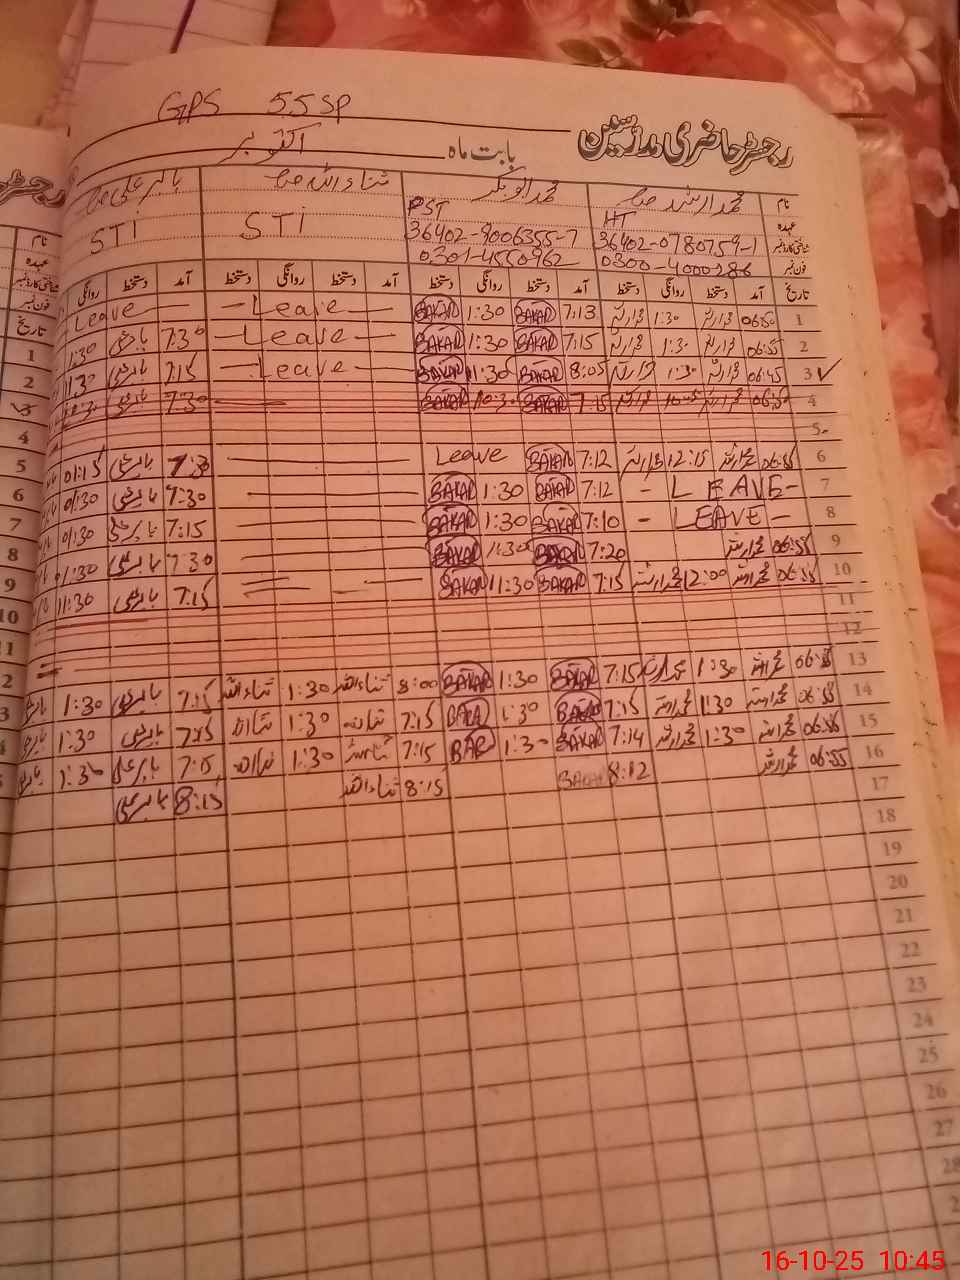 GPS 55SP
رجسٹر حاضری مدرسین
بابت ماہ اکتوبر
نام محمد ارشد صاحب محمد ابوبکر ثناء اللہ صاحب بابر علی صاحب
عہدہ HT PST STi STi
شناختی کارڈ نمبر 36402-0780759-1 36402-9006355-7
فون نمبر 0300-4000286 0301-4550962
تاریخ آمد دستخط روانگی دستخط آمد دستخط روانگی دستخط آمد دستخط روانگی دستخط آمد دستخط روانگی
1 06:50 محمد ارشد 1:30 محمد ارشد 7:13 BAKAR 1:30 BAKAR — Leave — Leave
2 06:55 محمد ارشد 1:30 محمد ارشد 7:15 BAKAR 1:30 BAKAR — Leave — 7:30 بابر علی 1:30
3 ✓ 06:45 محمد ارشد 1:30 محمد ارشد 8:05 BAKAR 1:30 BAKAR — Leave — 7:15 بابر علی 1:30
4 06:50 محمد ارشد محمد ارشد 7:15 BAKAR 10:30 BAKAR 7:30 بابر علی
5
6 06:55 محمد ارشد 12:15 محمد ارشد 7:12 BAKAR Leave 7:30 بابر علی 01:15
7 - LEAVE - 7:12 BAKAR 1:30 BAKAR 7:30 بابر علی 01:30
8 - LEAVE - 7:10 BAKAR 1:30 BAKAR 7:15 بابر علی 01:30
9 06:55 محمد ارشد 7:20 BAKAR 1:30 BAKAR 7:30 بابر علی 01:30
10 06:55 محمد ارشد 12:00 محمد ارشد 7:15 BAKAR 11:30 BAKAR 7:15 بابر علی 11:30
11
12
13 06:55 محمد ارشد 1:30 محمد ارشد 7:15 BAKAR 1:30 BAKAR 8:00 ثناء اللہ 1:30 ثناء اللہ 7:15 بابر علی 1:30
14 06:55 محمد ارشد 1:30 محمد ارشد 7:15 BAKAR 1:30 7:15 ثناء اللہ 1:30 ثناء اللہ 7:15 بابر علی 1:30
15 06:55 محمد ارشد 1:30 محمد ارشد 7:14 BAKAR 1:30 7:15 ثناء اللہ 1:30 ثناء اللہ 7:15 بابر علی 1:30
16 06:55 محمد ارشد 8:12 BAKAR 8:15 ثناء اللہ 8:15 بابر علی
17
18
19
20
21
22
23
24
25
26
27
28
نام
عہدہ
فون نمبر
تاریخ
1
2
3
4
5
6
7
8
9
10
16-10-25 10:45